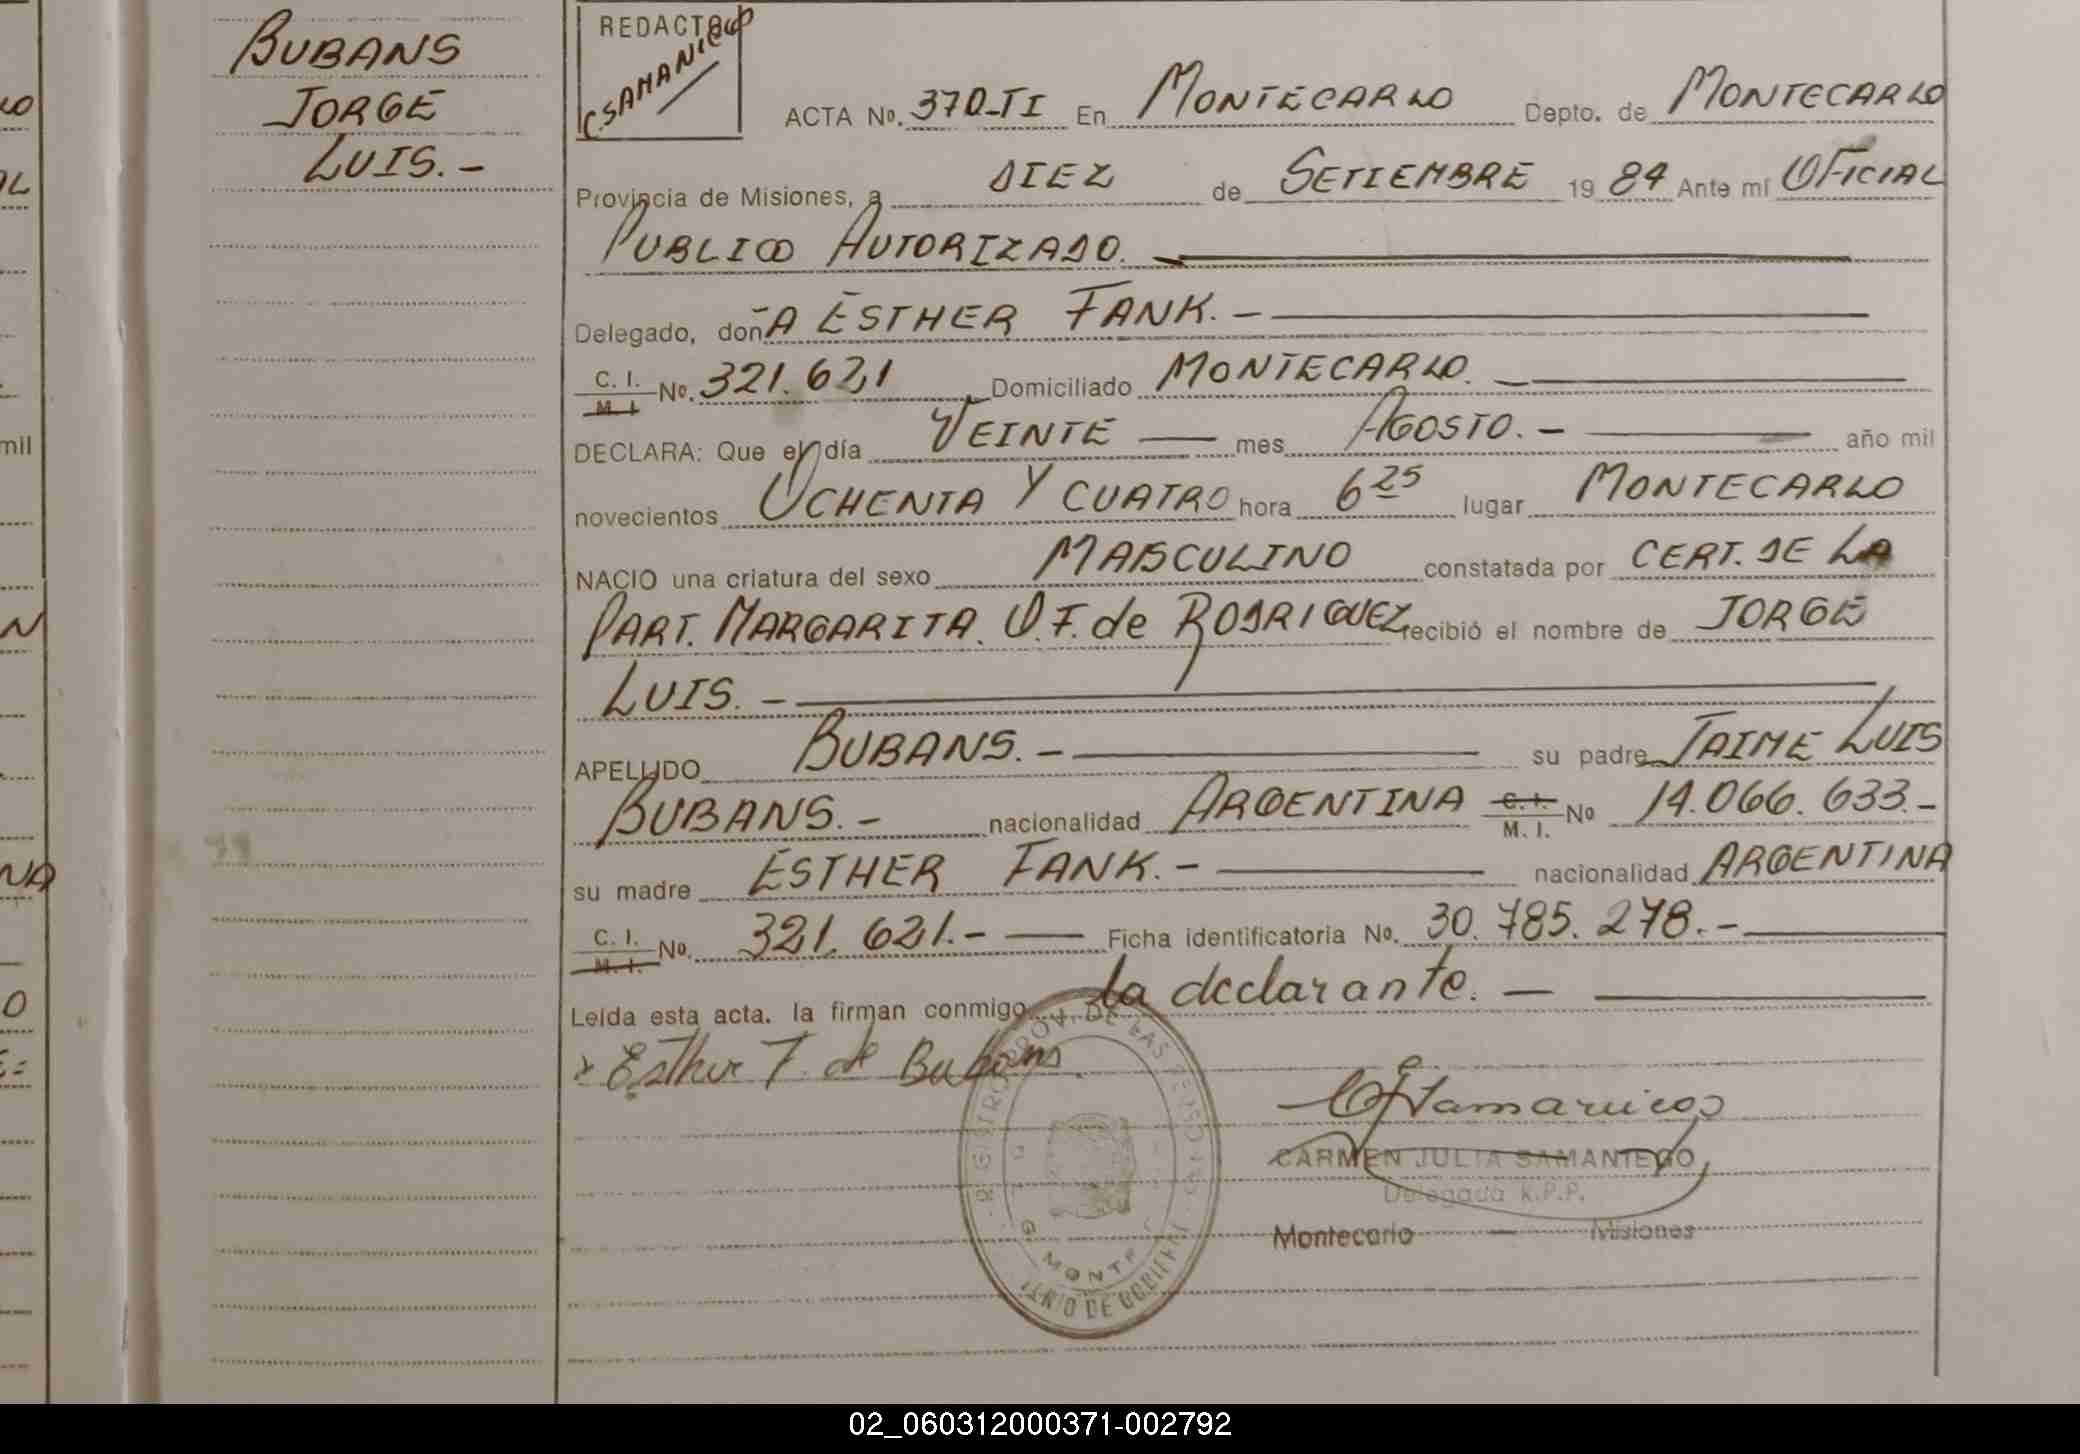 BUBANS
JORGE
LUIS.-
REDACTÓ
C. SAMANIEGO
ACTA No. 370-TI En MONTECARLO Depto. de MONTECARLO
Provincia de Misiones, a DIEZ de SETIEMBRE 19 84 Ante mí OFICIAL
PUBLICO AUTORIZADO.
Delegado, doñA ESTHER FANK.-
C. I. No. 321.621 Domiciliado MONTECARLO.
M. I.
DECLARA: Que el día VEINTE mes AGOSTO.- año mil
novecientos OCHENTA Y CUATRO hora 6 25 lugar MONTECARLO
NACIO una criatura del sexo MASCULINO constatada por CERT. DE LA
PART. MARGARITA. O.F. de RODRIGUEZ recibió el nombre de JORGE
LUIS.-
APELLIDO BUBANS.- su padre JAIME LUIS
BUBANS.- nacionalidad ARGENTINA C. I. No 14.066.633.-
M. I.
su madre ESTHER FANK.- nacionalidad ARGENTINA
C. I. No. 321.621.- Ficha identificatoria No. 30.785.278.-
M. I.
Leída esta acta. la firman conmigo la declarante.-
x Esther F. de Bubans.
CARMEN JULIA SAMANIEGO
Delegada R.P.P.
Montecarlo — Misiones
02_060312000371-002792